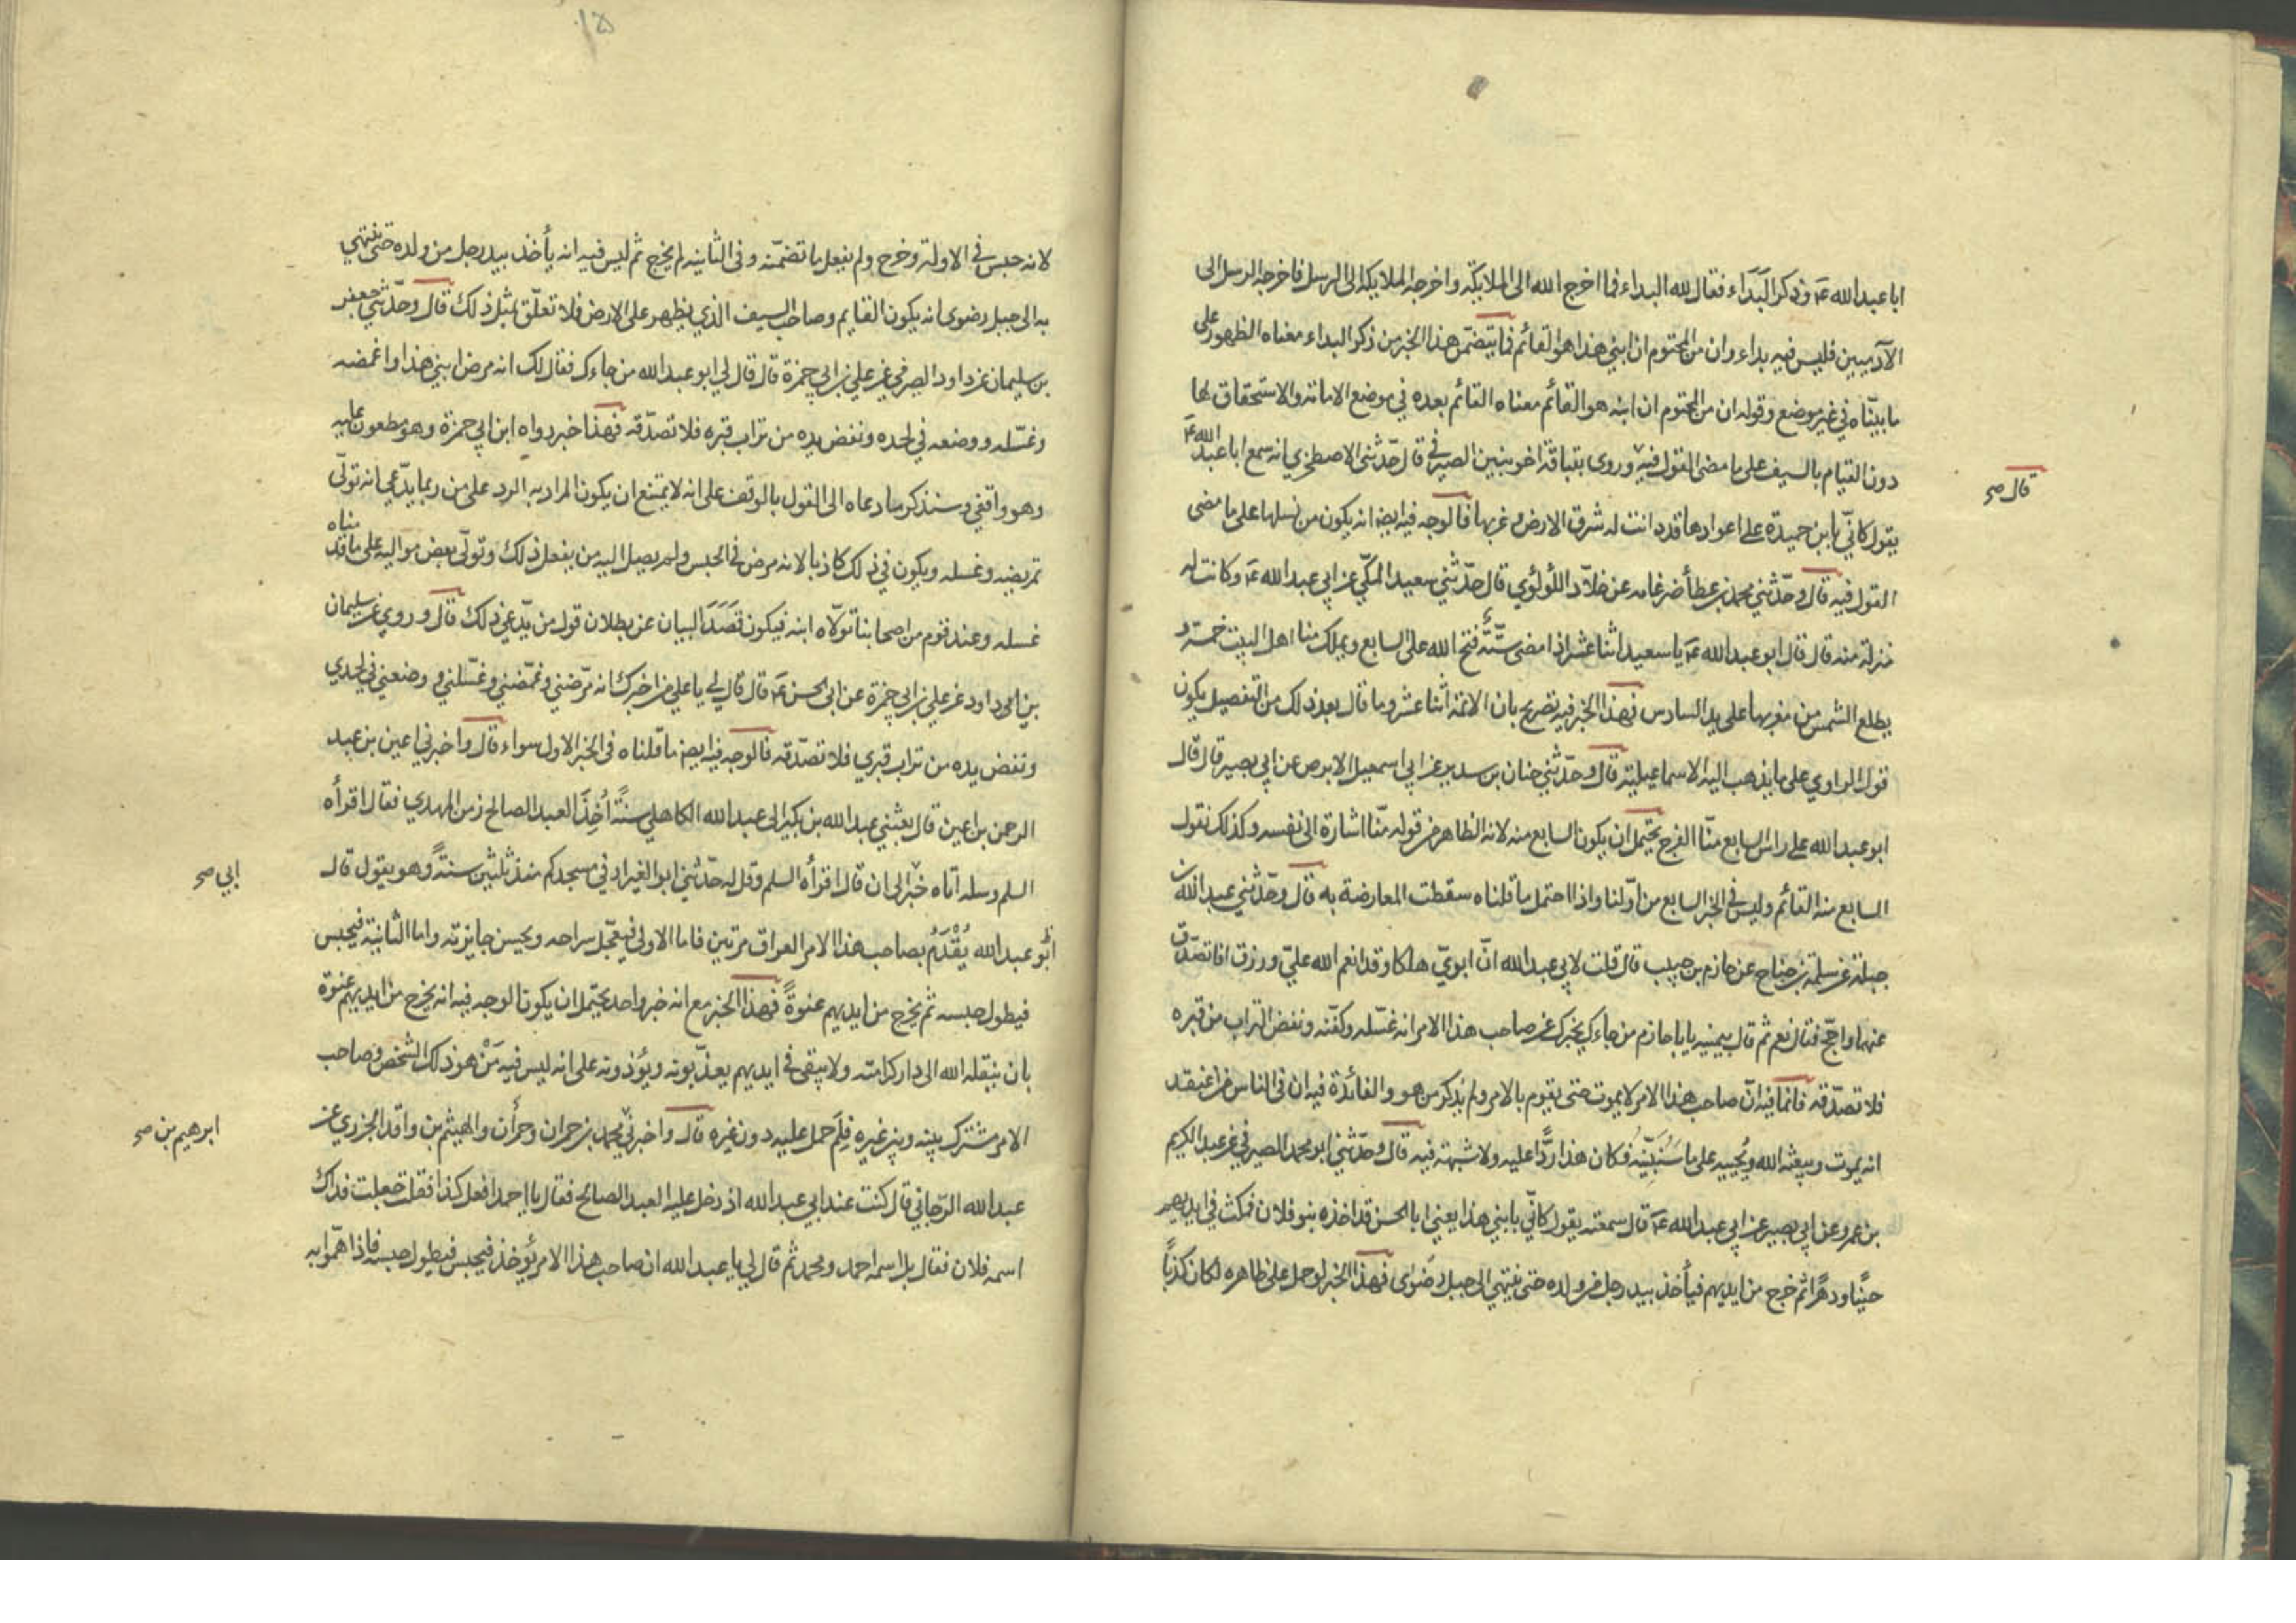 ابا عبدالله ع‍ وذكر البَدَاء فقال لله البداء فما اخرج الله الى الملايكة واخرجه الملايكة الى الرسل فاخرجه الرسل الى
الآدميين فليس فيه بداء وان من المحتوم ان ابني هذا هو القائم فما يتضمن هذا الخبر من ذكر البداء معناه الظهور على
ما بيّناه في غير موضع وقوله ان من المحتوم ان ابنه هو القائم معناه القائم بعده في موضع الامامة والاستحقاق لها
دون القيام بالسيف على ما مضى القول فيه وروى بقباقة اخو بنين الصيرفي قال حدّثني الاصطخري انه سمع ابا عبد الله ع‍
قال صح
يقول كانّي بابن حميدة على اعوادها قد دانت له شرق الارض وغربها فالوجه فيه ايضا انه يكون من نسلها على ما مضى
القول فيه قال وحدّثني محمد بن عطأ ضرغامه عن خلّاد اللؤلؤي قال حدّثني سعيد المكّي عن ابي عبد الله ع‍ وكانت له
منزلة منه قال قال ابو عبد الله ع‍ يا سعيد اثنا عشر اذا مضى ستّة فتح الله على السابع ويملك منا اهل البيت خمسة و
يطلع الشمس من مغربها على يد السادس فهذا الخبر فيه تصريح بان الائمة اثنا عشر وما قال بعد ذلك من التفصيل يكون
قول الراوي على ما يذهب اليه الاسماعيلية قال وحدّثني حنان بن سدير عن ابي اسمعيل الابرص عن ابي بصير قال قال
ابو عبد الله على راس السابع منّا الفرج يحتمل ان يكون السابع منه لانه الظاهر من قوله منّا اشارة الى نفسه وكذلك نقول
السابع منه القائم وليس في الخبر السابع من اوّلنا واذا احتمل ما قلناه سقطت المعارضة به قال وحدّثني عبد الله بن
جبلة عن سلمة بن جناح عن حازم بن حبيب قال قلت لابي عبد الله انّ ابويّ هلكا وقد انعم الله عليّ ورزق افاتصدّق
عنهما واحجّ فقال نعم ثم قال بيمينه يا با حازم من جاءك يخبرك عن صاحب هذا الامر انه غسّله وكفّنه ونفض التراب من قبره
فلا تصدّقه فانما فيه انّ صاحب هذا الامر لا يموت حتى يقوم بالامر ولم يذكر من هو والفائدة فيه ان في الناس من اعتقد
انه يموت ويبعثه الله ويُحييه على ما سَنُبَيِّنُه فكان هذا ردًّا عليه ولا شبهة فيه قال وحدّثني ابو محمد الصيرفي عن عبد الكريم
بن عمرو عن ابي بصير عن ابي عبد الله ع‍ قال سمعته يقول كانّي بابني هذا يعني ابا الحسن قد اخذه بنو فلان فمكث في ايديهم
حينًا ودهرًا ثم خرج من ايديهم فيأخذ بيد رجل من ولده حتى ينتهي الى جبل رضوى فهذا الخبر لو حمل على ظاهره لكان كذبًا
لانه حبس في الاولة وخرج ولم يفعل ما تضمّنه وفي الثانية لم يخرج ثم ليس فيه انه يأخذ بيد رجل من ولده حتى ينتهي
به الى جبل رضوى انه يكون القايم وصاحب السيف الذي يظهر على الارض فلا تعلّق بمثل ذلك قال وحدّثني جعفر
بن سليمان عن داود الصرفي عن علي بن ابي حمزة قال قال لي ابو عبد الله من جاءك فقال لك انه مرض ابني هذا واغمضه
وغسّله ووضعه في لحده ونفض يده من تراب قبره فلا تصدّقه فهذا خبر رواه ابن ابي حمزة وهو مطعون عليه
وهو واقفي وسنذكر ما دعاه الى القول بالوقف على انه لا يمتنع ان يكون المراد به الرد على من ربما يدّعي انه تولّى
تمريضه وغسله ويكون في ذلك كاذبا لانه مرض في الحبس ولم يصل اليه من يفعل ذلك وتولّى بعض مواليه على ما قدّمناه
غسله وعند قوم من اصحابنا تولّاه ابنه فيكون قَصَدَ البيان عن بطلان قول من يدّعي ذلك قال وروي عن سليمان
بن داود عن علي بن ابي حمزة عن ابي الحسن ع‍ قال قال لي يا علي من اخبرك انه مرّضني وغمّضني وغسّلني ووضعني في لحدي
ونفض يده من تراب قبري فلا تصدّقه فالوجه فيه ايضا ما قلناه في الخبر الاول سواء قال واخبرني اعين بن عبد
الرحمن بن اعين قال بعثني عبد الله بن بكير الى عبد الله الكاهلي سنةً اُخِذَ العبد الصالح زمن المهدي فقال اقرأه
السلم وسله اتاه خبر الى ان قال اقرأه السلم وقل له حدّثني ابو العيزار في مسجدكم منذ ثلثين سنةً وهو يقول قال
ابي صح
ابو عبد الله يُقْدَمُ بصاحب هذا الامر العراق مرتين فاما الاولى فيعجّل سراحه ويحسن جايزته واما الثانية فيحبس
فيطول حبسه ثم يخرج من ايديهم عنوةً فهذا الخبر مع انه خبر واحد يحتمل ان يكون الوجه فيه انه يخرج من ايديهم عنوة
بان ينقله الله الى دار كرامته ولا يبقى في ايديهم يعذّبونه ويؤذونه على انه ليس فيه مَنْ هو ذلك الشخص وصاحب
الامر مشترك بينه وبين غيره فلِمَ حمل عليه دون غيره قال واخبرني محمد بن حمران وحمرأن والهيثم بن واقد الجزري عن
ابرهيم بن صح
عبد الله الرّجاني قال كنت عند ابي عبد الله اذ دخل عليه العبد الصالح فقال يا احمد افعل كذا فقلت جعلت فداك
اسمه فلان فقال بل اسمه احمد ومحمد ثم قال لي يا عبد الله ان صاحب هذا الامر يؤخذ فيحبس فيطول حبسه فاذا همّوا به